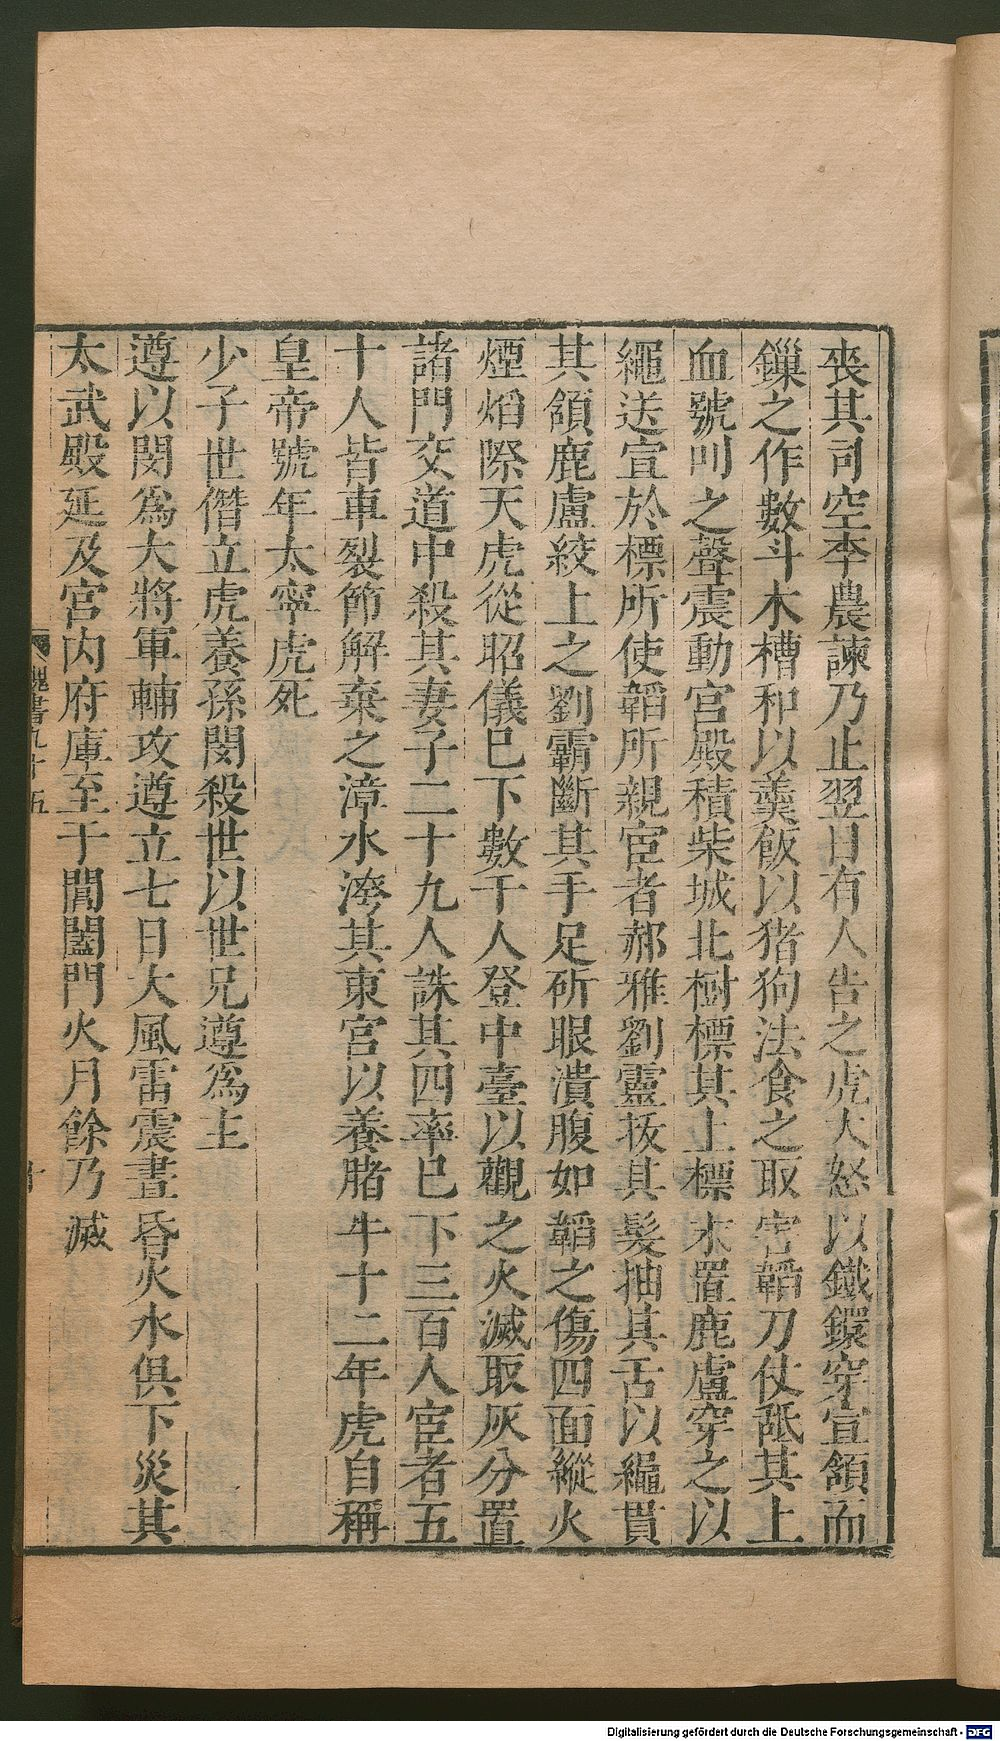 喪其司空李農諫乃止翌日有人告之虎大怒以鐵鐶穿宣頷而
鏁之作數斗木槽和以羹飯以猪狗法食之取害韜刀仗舐其上
血號叫之聲震動宮殿積柴城北樹標其上標末置鹿盧穿之以
繩送宣於標所使韜所親宦者郝雅劉靈抜其髮抽其舌以繩貫
其頷鹿盧絞上之劉霸斷其手足斫眼潰腹如韜之傷四面縱火
煙焰際天虎從昭儀巳下數千人登中臺以觀之火滅取灰分置
諸門交道中殺其妻子二十九人誅其四率巳下三百人宦者五
十人皆車裂節解棄之漳水洿其東宮以養賭牛十二年虎自稱
皇帝號年太寧虎死
少子世僭立虎養孫閔殺世以世兄遵爲主
遵以閔爲大將軍輔攻遵立七日大風雷震晝昏火水俱下災其
太武殿延及宮內府庫至于閶闔門火月餘乃滅
魏書九十五
十
Digitalisierung gefördert durch die Deutsche Forschungsgemeinschaft - DFG